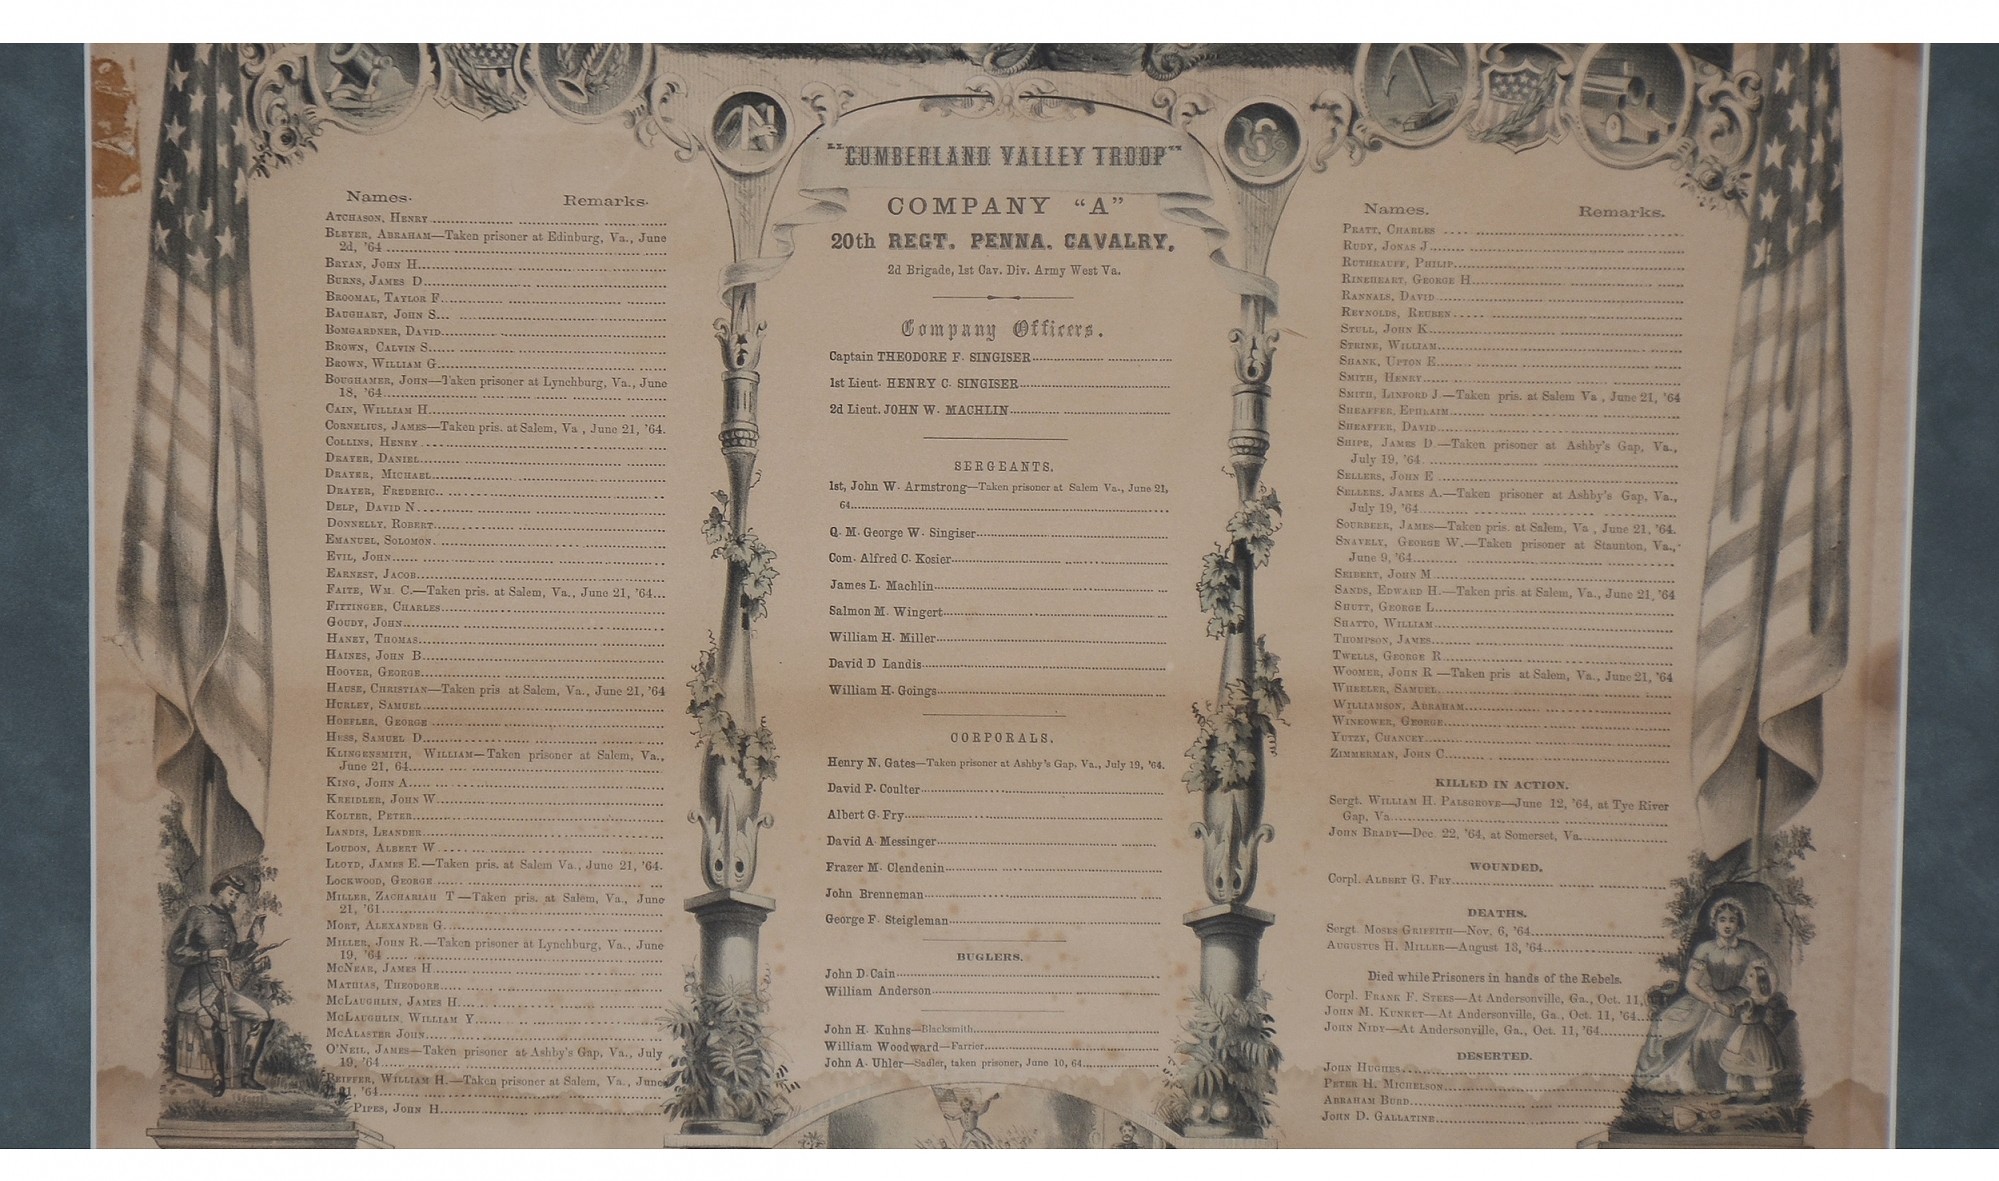 "CUMBERLAND VALLEY TROOP"
COMPANY "A"
20th REGT. PENNA. CAVALRY,
2d Brigade, 1st Cav. Div. Army West Va.
Names. Remarks.
ATCHASON, HENRY
BLEYER, ABRAHAM—Taken prisoner at Edinburg, Va., June
2d, '64
BRYAN, JOHN H.
BURNS, JAMES D.
BROOMAL, TAYLOR F.
BAUGHART, JOHN S.
BOMGARDNER, DAVID
BROWN, CALVIN S.
BROWN, WILLIAM G.
BOUGHAMER, JOHN—Taken prisoner at Lynchburg, Va., June
18, '64
CAIN, WILLIAM H.
CORNELIUS, JAMES—Taken pris. at Salem, Va , June 21, '64.
COLLINS, HENRY
DRAYER, DANIEL
DRAYER, MICHAEL
DRAYER, FREDERIC
DELP, DAVID N.
DONNELLY, ROBERT
EMANUEL, SOLOMON
EVIL, JOHN
EARNEST, JACOB
FAITE, WM. C.—Taken pris. at Salem, Va., June 21, '64
FITTINGER, CHARLES
GOUDY, JOHN
HANEY, THOMAS
HAINES, JOHN B.
HOOVER, GEORGE
HAUSE, CHRISTIAN—Taken pris at Salem, Va., June 21, '64
HURLEY, SAMUEL
HOEFLER, GEORGE
HESS, SAMUEL D.
KLINGENSMITH, WILLIAM—Taken prisoner at Salem, Va.,
June 21, 64
KING, JOHN A.
KREIDLER, JOHN W.
KOLTER, PETER
LANDIS, LEANDER
LOUDON, ALBERT W.
LLOYD, JAMES E.—Taken pris. at Salem Va., June 21, '64.
LOCKWOOD, GEORGE
MILLER, ZACHARIAH T—Taken pris. at Salem, Va., June
21, '61
MORT, ALEXANDER G.
MILLER, JOHN R.—Taken prisoner at Lynchburg, Va., June
19, '64
MCNEAR, JAMES H
MATHIAS, THEODORE
MCLAUGHLIN, JAMES H.
MCLAUGHLIN, WILLIAM Y.
MCALASTER JOHN
O'NEIL, JAMES—Taken prisoner at Ashby's Gap, Va., July
19, '64
REIFFER, WILLIAM H.—Taken prisoner at Salem, Va., June
21, '64
PIPES, JOHN H.
Company Officers.
Captain THEODORE F. SINGISER
1st Lieut. HENRY C. SINGISER
2d Lieut. JOHN W. MACHLIN
SERGEANTS.
1st, John W. Armstrong—Taken prisoner at Salem Va., June 21,
64
Q. M. George W. Singiser
Com. Alfred C. Kosier
James L. Machlin
Salmon M. Wingert
William H. Miller
David D Landis
William H. Goings
CORPORALS.
Henry N. Gates—Taken prisoner at Ashby's Gap, Va., July 19, '64.
David P. Coulter
Albert G. Fry
David A. Messinger
Frazer M. Clendenin
John Brenneman
George F. Steigleman
BUGLERS.
John D. Cain
William Anderson
John H. Kuhns—Blacksmith
William Woodward—Farrier
John A. Uhler—Sadler, taken prisoner, June 10, 64
Names. Remarks.
PRATT, CHARLES
RUDY, JONAS J.
RUTHRAUFF, PHILIP
RINEHEART, GEORGE H.
RANNALS, DAVID
REYNOLDS, REUBEN
STULL, JOHN K.
STRINE, WILLIAM
SHANK, UPTON E.
SMITH, HENRY
SMITH, LINFORD J.—Taken pris. at Salem Va , June 21, '64
SHEAFFER, EPHRAIM
SHEAFFER, DAVID
SHIPE, JAMES D.—Taken prisoner at Ashby's Gap, Va.,
July 19, '64.
SELLERS, JOHN E
SELLERS, JAMES A.—Taken prisoner at Ashby's Gap, Va.,
July 19, '64
SOURBEER, JAMES—Taken pris. at Salem, Va , June 21, '64.
SNAVELY, GEORGE W.—Taken prisoner at Staunton, Va.,
June 9, '64
SEIBERT, JOHN M
SANDS, EDWARD H.—Taken pris. at Salem, Va., June 21, '64
SHUTT, GEORGE L.
SHATTO, WILLIAM
THOMPSON, JAMES
TWELLS, GEORGE R.
WOOMER, JOHN R —Taken pris at Salem, Va., June 21, '64
WHEELER, SAMUEL
WILLIAMSON, ABRAHAM
WINEOWER, GEORGE
YUTZY, CHANCEY
ZIMMERMAN, JOHN C.
KILLED IN ACTION.
Sergt. WILLIAM H. PALSGROVE—June 12, '64, at Tye River
Gap, Va.
JOHN BRADY—Dec. 22, '64, at Somerset, Va.
WOUNDED.
Corpl. ALBERT G. FRY
DEATHS.
Sergt. MOSES GRIFFITH—Nov. 6, '64
AUGUSTUS H. MILLER—August 13, '64
Died while Prisoners in hands of the Rebels.
Corpl. FRANK F. STEES—At Andersonville, Ga., Oct. 11,
JOHN M. KUNKET—At Andersonville, Ga., Oct. 11, '64
JOHN NIDY—At Andersonville, Ga., Oct. 11, '64
DESERTED.
JOHN HUGHES
PETER H. MICHELSON
ABRAHAM BURD
JOHN D. GALLATINE